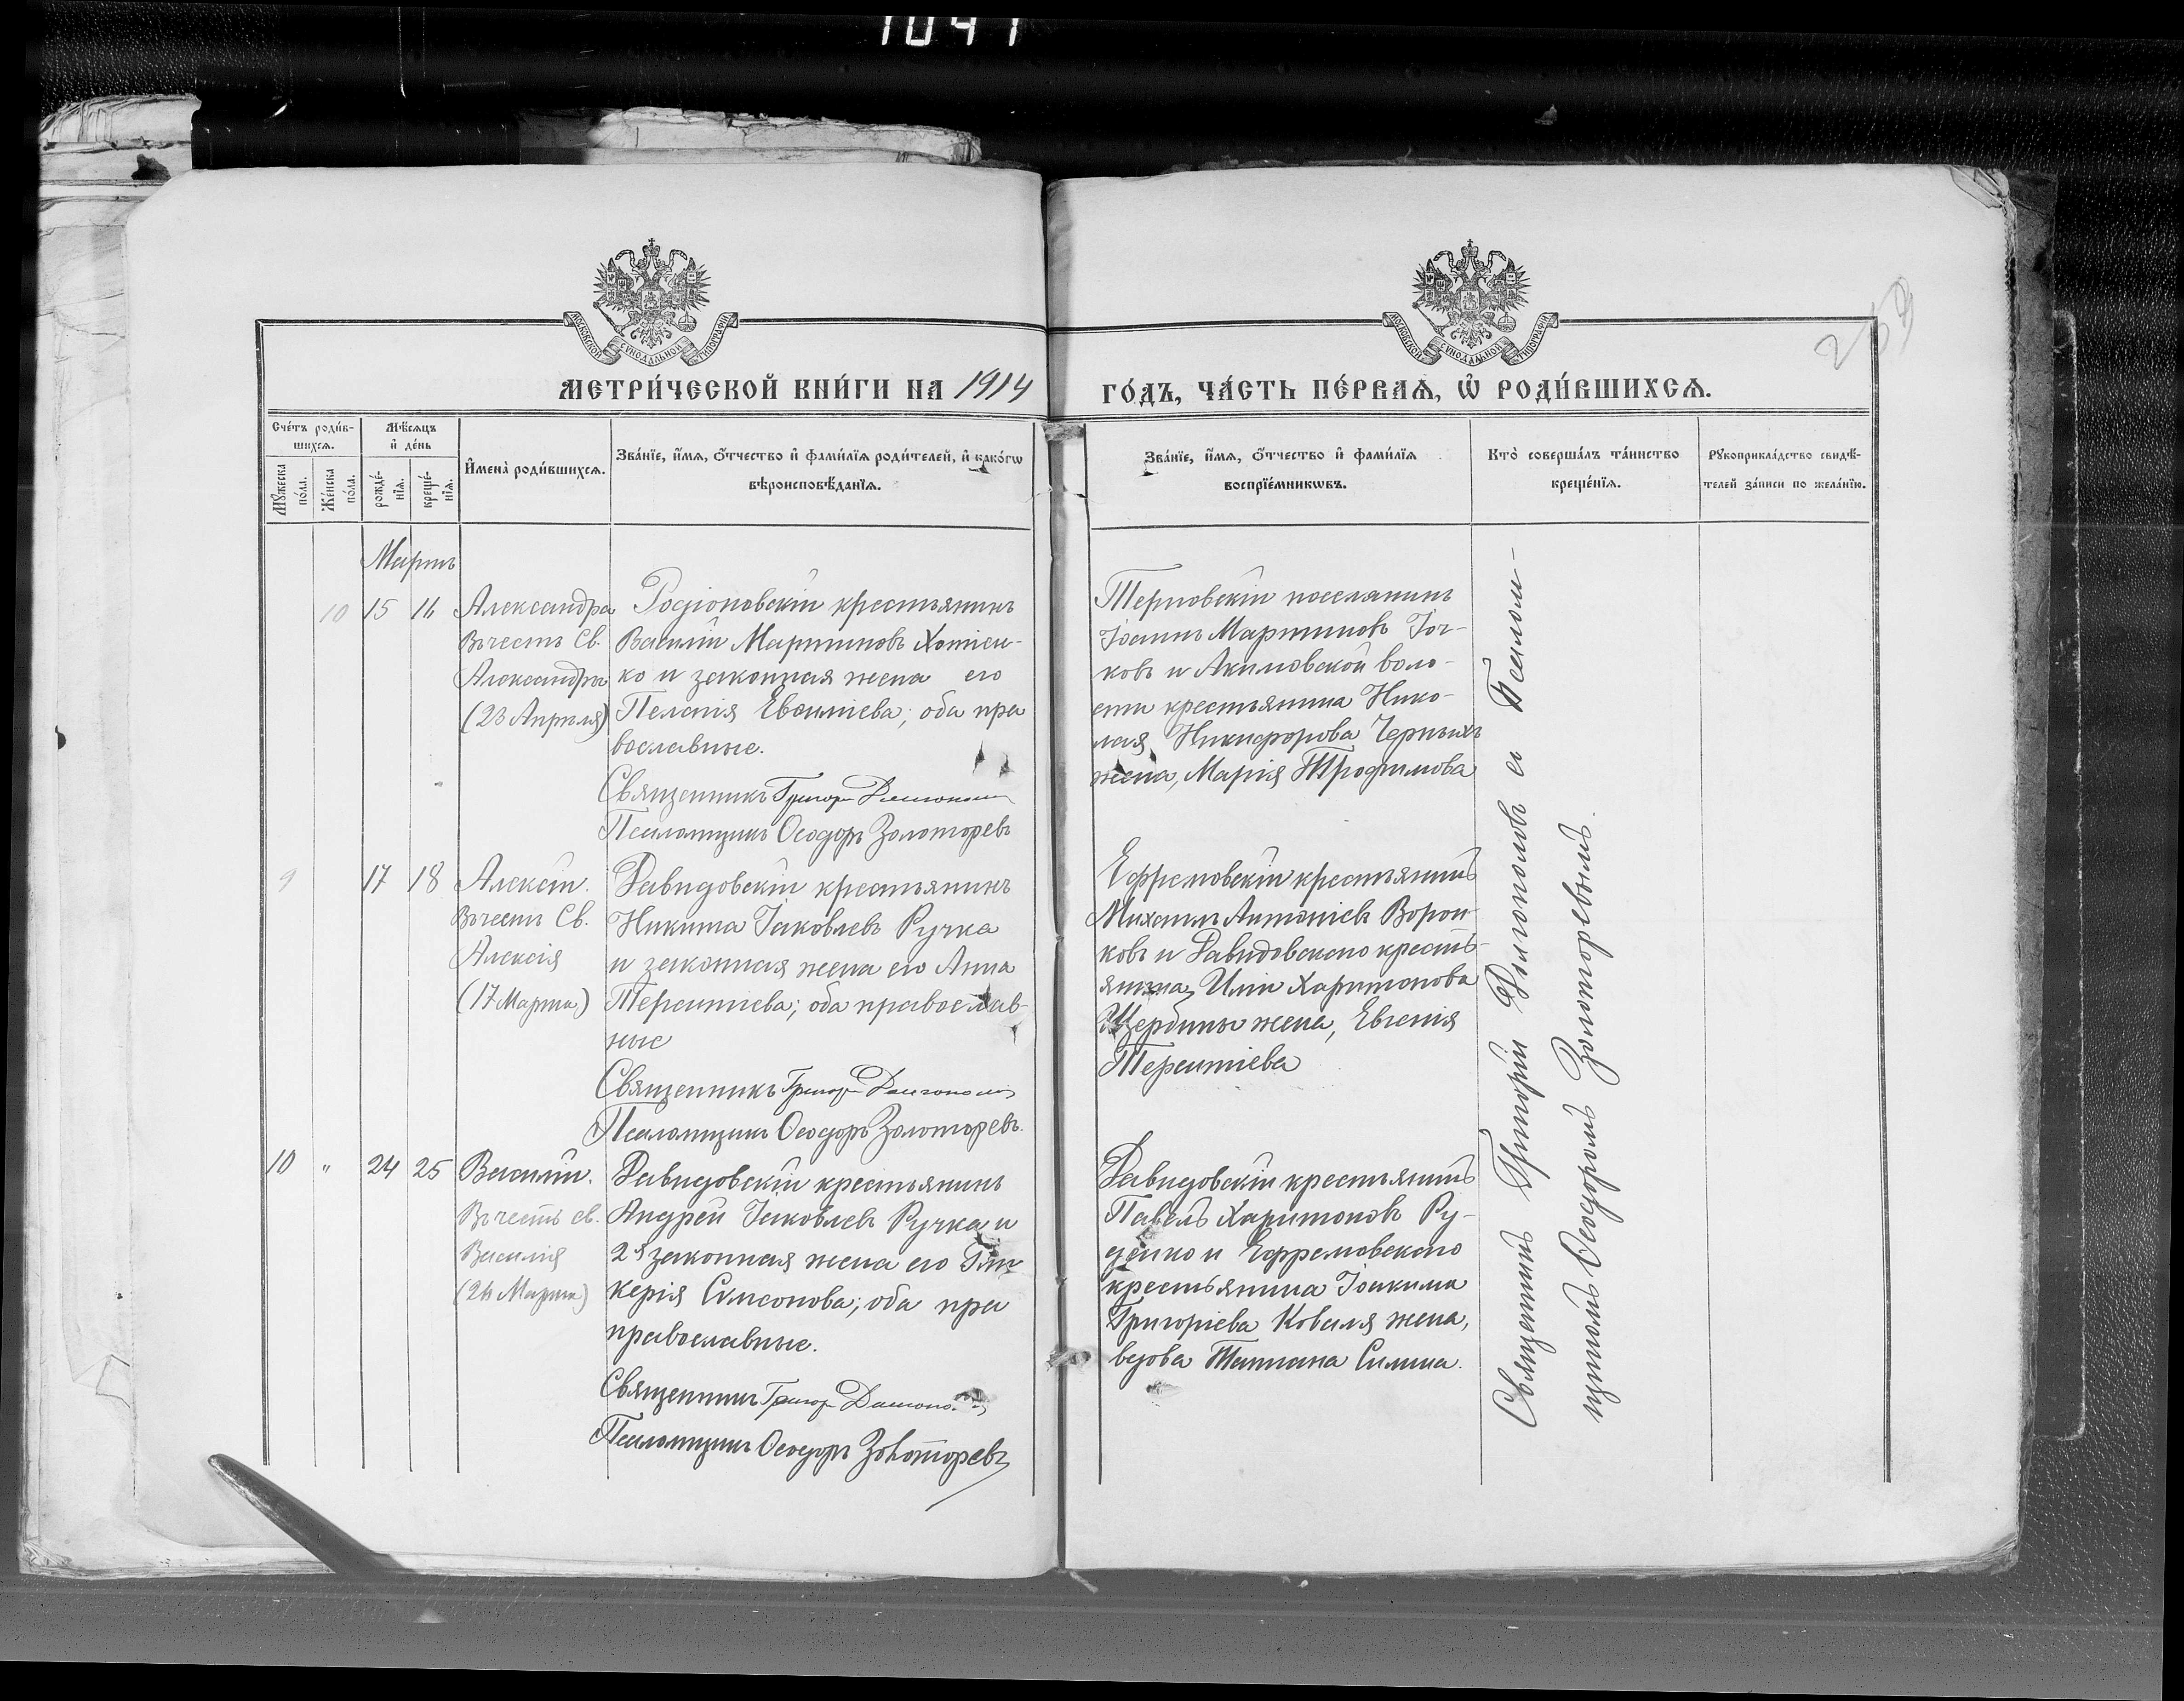 1041
253
МОСКОВСКОЙ СѴНОДАЛЬНОЙ ТИПОГРАФІИ
МОСКОВСКОЙ СѴНОДАЛЬНОЙ ТИПОГРАФІИ
МЕТРИ́ЧЕСКОЙ КНИ́ГИ НА 1914
ГО́ДЪ, ЧА́СТЬ ПЕ́РВАЯ, Ѡ РОДИ́ВШИХСЯ.
Сче́тъ роди́в-
шихся.
Му́жеска по́ла.
Же́нска по́ла.
Мѣ́сяцъ
и де́нь
рожде́-
нія.
креще́-
нія.
Имена̀ роди́вшихся.
Зва́ніе, и́мя, о́тчество и фами́лія роди́телей, и како́гѡ
вѣроисповѣ́данія.
Зва́ніе, и́мя, о́тчество и фами́лія
воспріе́мникѡвъ.
Кто̀ соверша́лъ та́инство
креще́нія.
Рукоприкла́дство свидѣ́-
телей за́писи по жела́нію.
Мартъ
10 15 16
Александра
Въ честь Св.
Александры
(23 Апрѣля)
Родіоновскій крестьянинъ
Василій Мартиновъ Хотіен-
ко и законная жена его
Пелагія Евсигніева; оба пра
вославные.
Священникъ Григор
Псаломщикъ Ѳеодоръ Золоторевъ
Терновскій поселянинъ
Іоаннъ Мартиновъ Гоч-
ковъ и Акимовской воло-
сти крестьянина Нико-
лая Никифорова Черныхъ
жена, Марія Трофимова
9 17 18
Алексѣй.
Въ честь Св.
Алексія
(17 Марта)
Давидовскій крестьянинъ
Никита Іаковлевъ Ручка
и законная жена его Анна
Терентіева; оба православ-
ные
Священникъ Григор
Псаломщикъ Ѳеодоръ Золоторевъ.
Ефремовскій крестьянинъ
Михаилъ Антоніевъ Ворон
ковъ и Давидовскаго кресть-
янина Иліи Харитонова
Щербины жена, Евгенія
Терентіева
10 " 24 25
Василій.
Въ честь св.
Василія
(26 Марта)
Давидовскій крестьянинъ
Андрей Іаковлевъ Ручка и
2я законная жена его Гли
керія Самсонова; оба пра
православные.
Священникъ Григор
Псаломщикъ Ѳеодоръ Золоторевъ
Давидовскій крестьянинъ
Павелъ Харитоновъ Ру-
денко и Ефремовскаго
крестьянина Іоакима
Григоріева Коваля жена,
вдова Татіана Силина.
Священникъ Григорій и Псалом-
щикомъ Ѳеодоромъ Золоторевымъ.